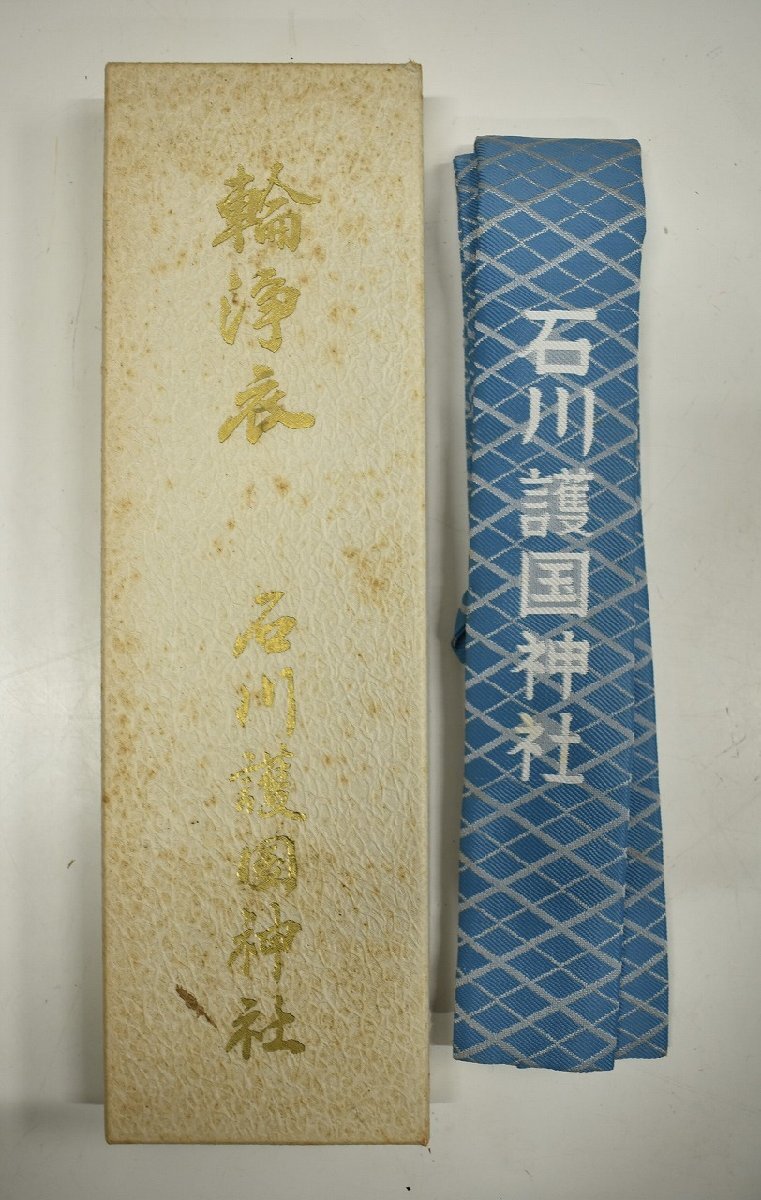 輪浄衣
石川護国神社
石川護国神社